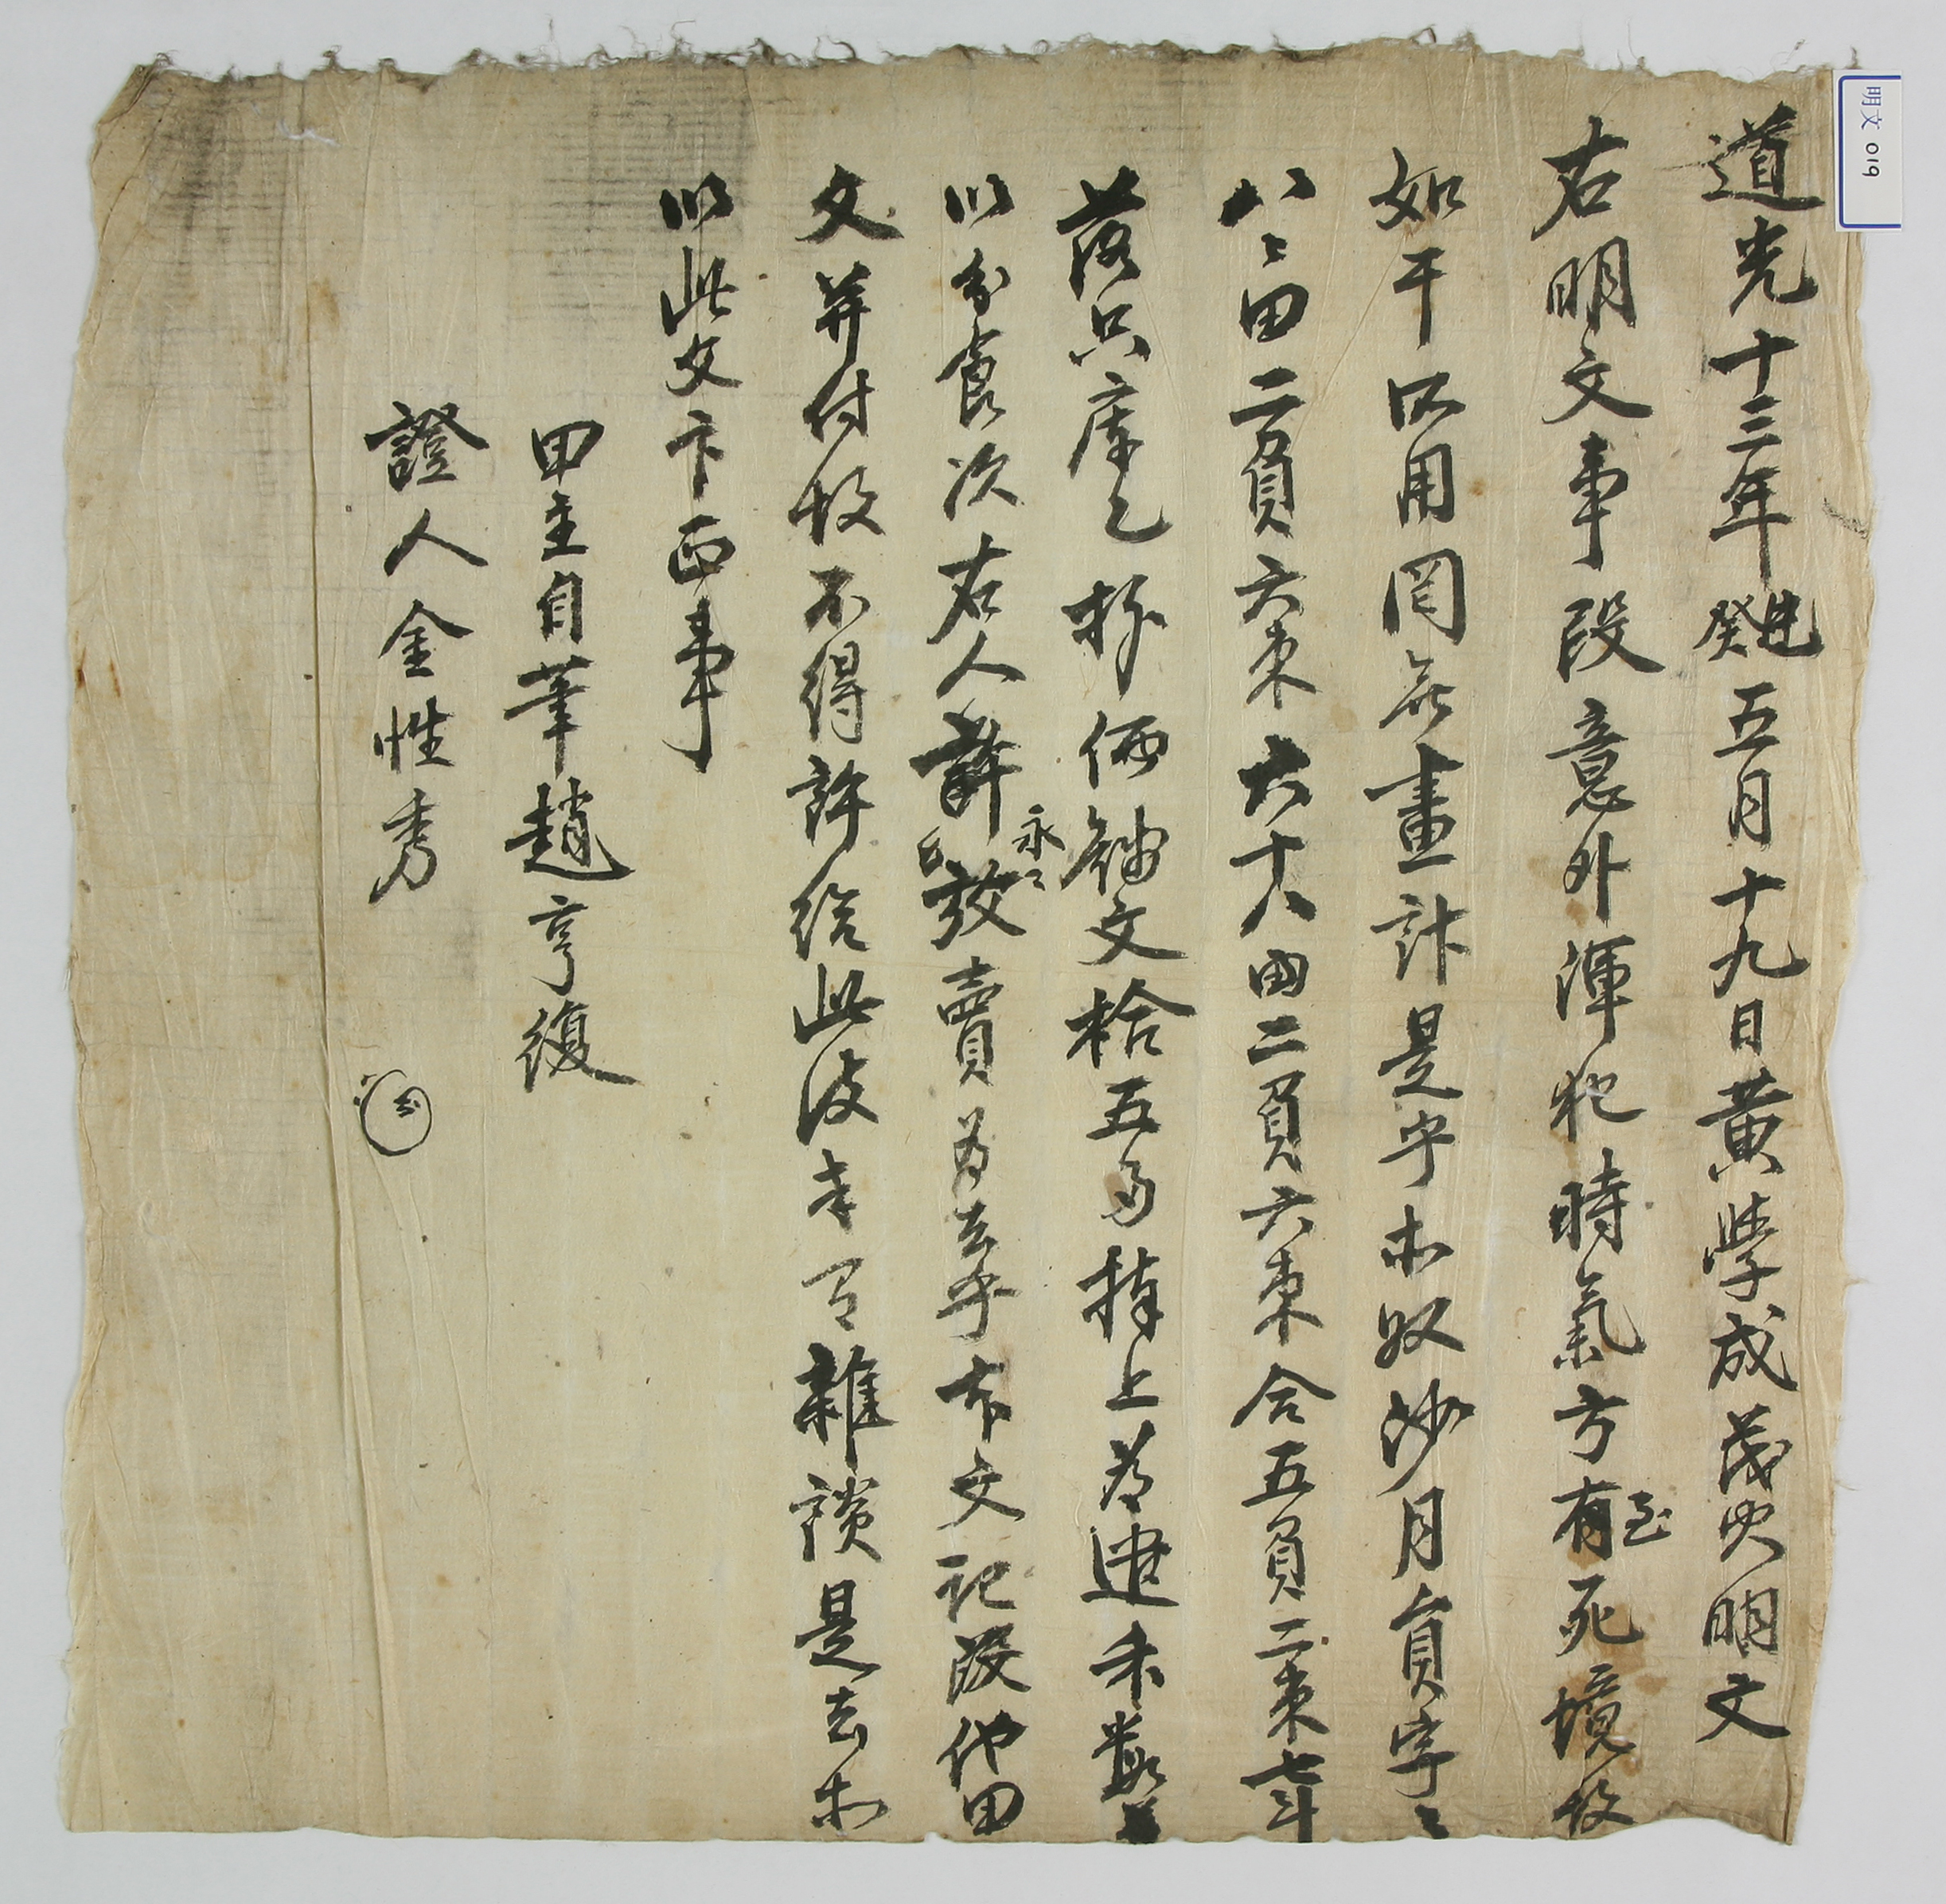 道光十三年癸巳五月十九日黃學成茂處明文
右明文事段意外渾犯時氣方有至死境故
如干所用罔無畫計是乎木奴沙月員字
八田二負六束六十八田二負六束合五負二束七斗
落只庫乙折価錢文拾五兩捧上為遣未
以分食次右人前永永放賣為去乎本文記段他田
文幷付故不得許給此後若有雜談是去木
以此文卞正事
田主自筆趙亨復
證人金性秀
明文 019